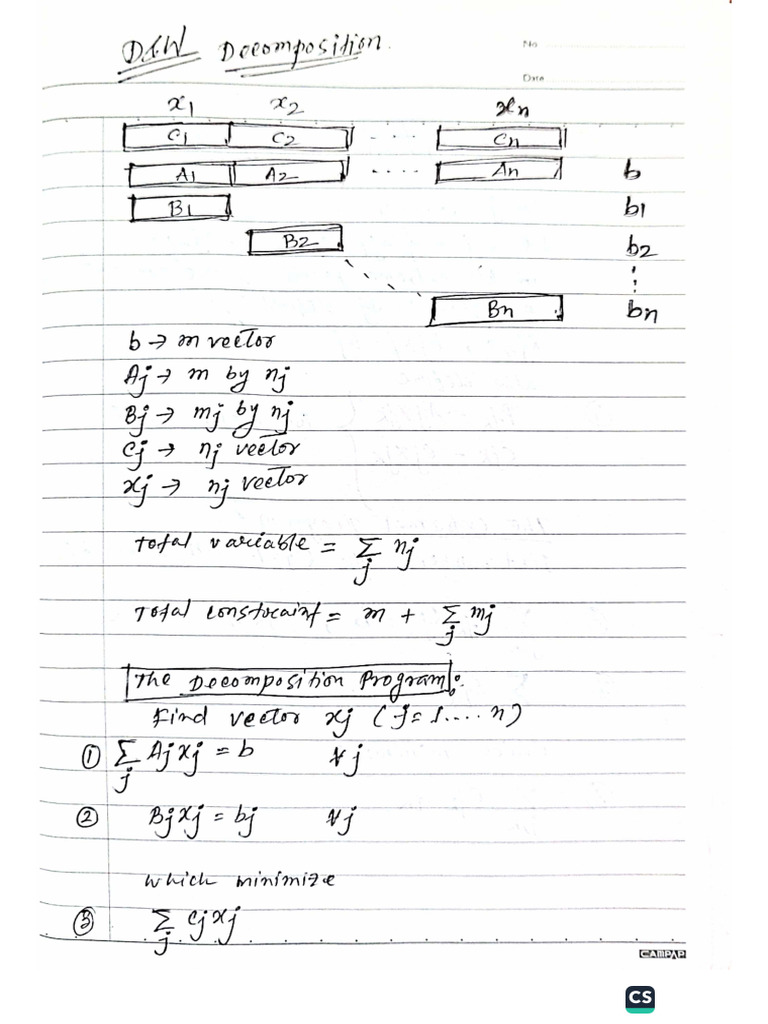 D&W Decomposition.
No
Date
x1 x2 xn
C1 C2 .... Cn
A1 A2 .... An b
B1 b1
B2 b2
⋮
Bn bn
b → m vector
Aj → m by nj
Bj → mj by nj.
Cj → nj vector
xj → nj vector
Total variable = ∑j nj
Total constraint = m + ∑j mj
The Decomposition Program:
Find vector xj (j=1....n)
① ∑j Ajxj = b ∀j
② Bjxj = bj ∀j
which minimize
③ ∑j Cjxj
CAMPAP
CS